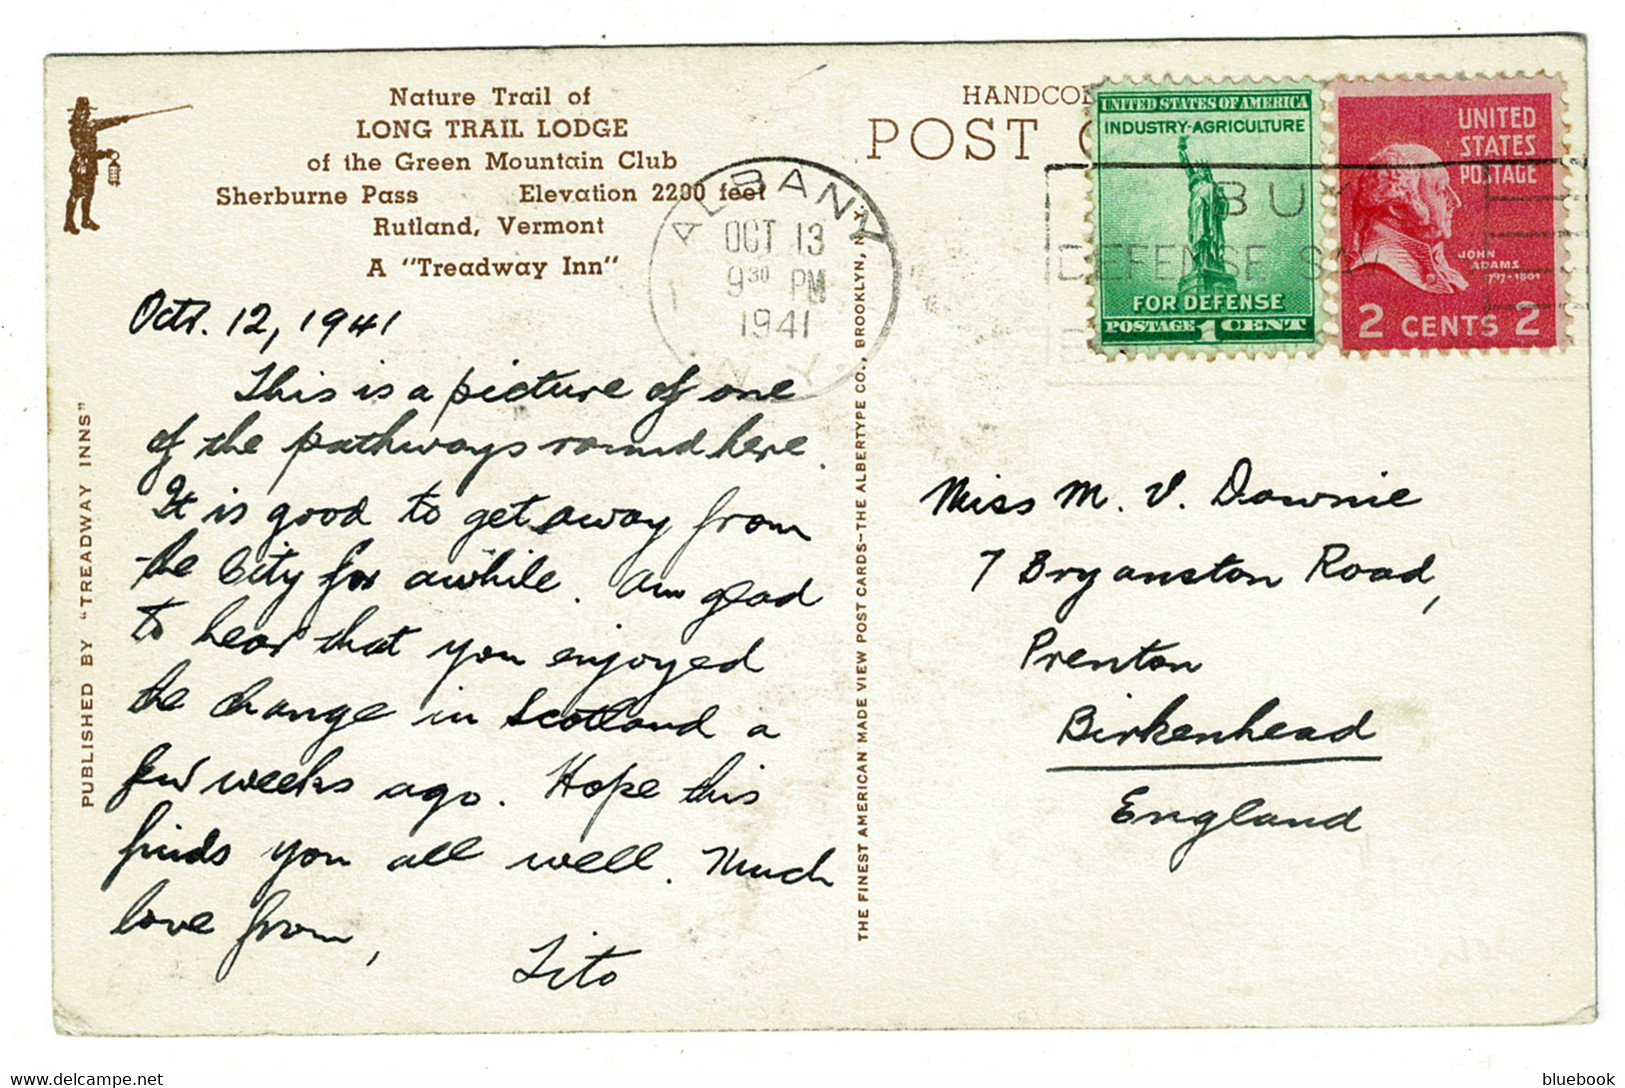 Nature Trail of
LONG TRAIL LODGE
of the Green Mountain Club
Sherburne Pass Elevation 2200 feet
Rutland, Vermont
A "Treadway Inn"
Oct. 12, 1941
This is a picture of one
of the pathways round here.
It is good to get away from
the City for awhile. Am glad
to hear that you enjoyed
the change in Scotland a
few weeks ago. Hope this
finds you all well. Much
love from,
Tito
PUBLISHED BY "TREADWAY INNS"
THE FINEST AMERICAN MADE VIEW POST CARDS-THE ALBERTYPE CO., BROOKLYN, N.Y.
ALBANY
OCT 13
9 30 PM
1941
N.Y.
HANDCO
POST C
UNITED STATES OF AMERICA
INDUSTRY-AGRICULTURE
FOR DEFENSE
POSTAGE 1 CENT
UNITED
STATES
POSTAGE
JOHN
ADAMS
1797-1801
2 CENTS 2
BUY
DEFENSE SAV
Miss M. V. Downie
7 Bryanston Road,
Prenton
Birkenhead
England
bluebook